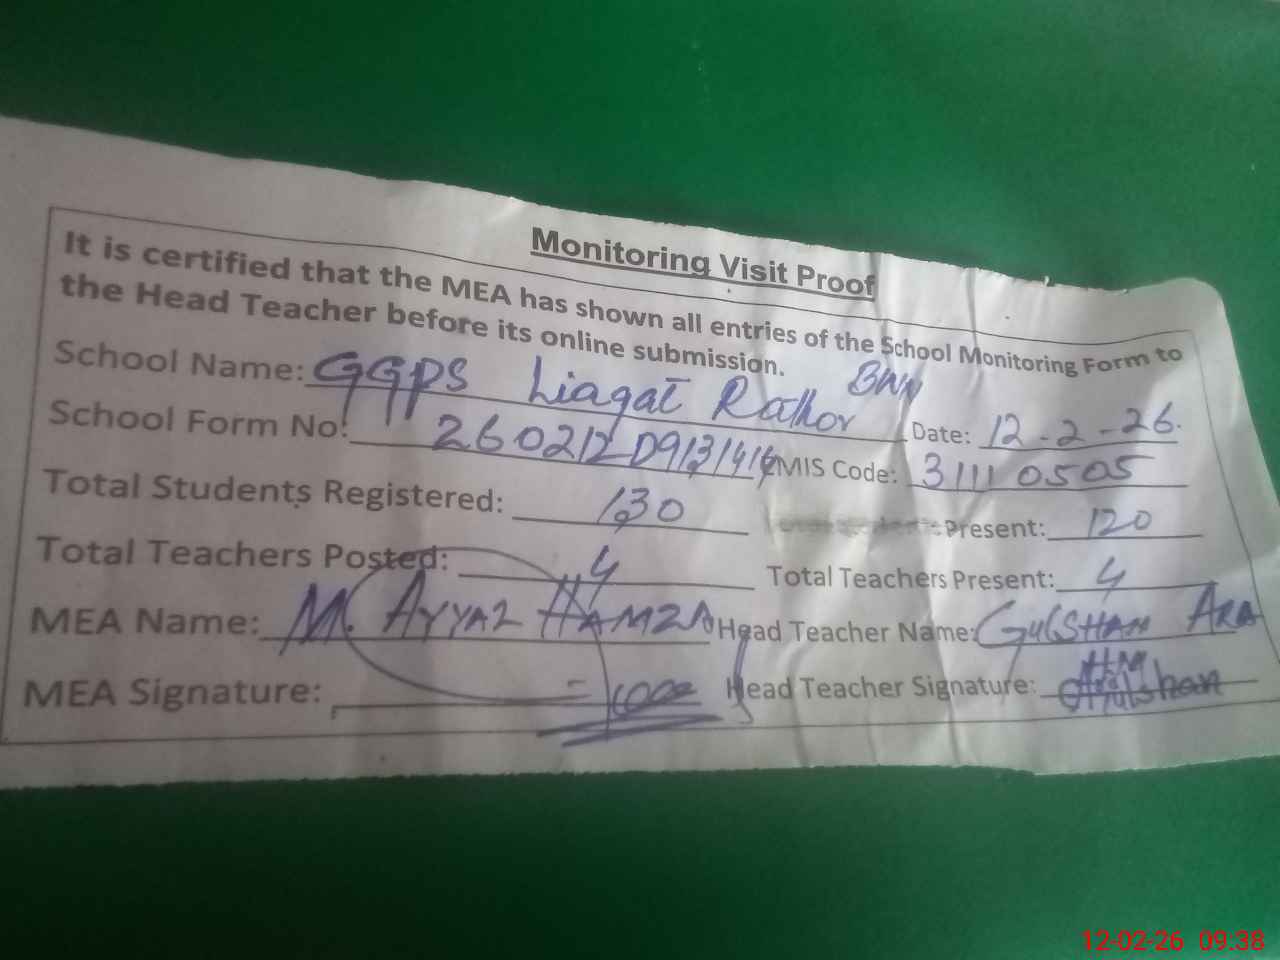 Monitoring Visit Proof
It is certified that the MEA has shown all entries of the School Monitoring Form to
the Head Teacher before its online submission.
School Name: GGPS Liaqat Rathor BWN
School Form No: Date: 12-2-26.
EMIS Code: 31110505
Total Students Registered: 130 Present: 120
Total Teachers Posted: 4 Total Teachers Present: 4
MEA Name: M. AYYAZ HAMZA Head Teacher Name: GULSHAN ARA
MEA Signature: Head Teacher Signature: HM
12-02-26 09:38